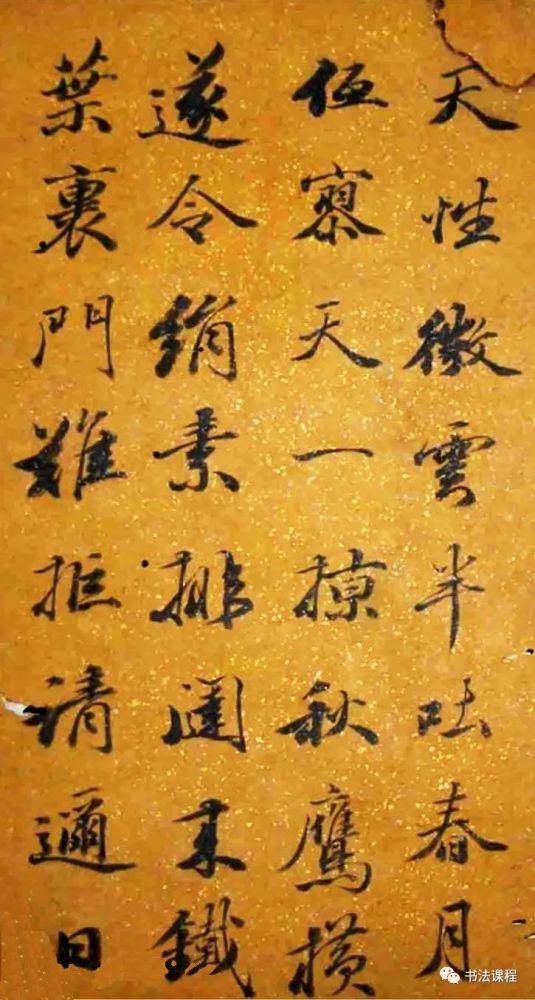 天性微雲半吐春月
低寥天一掠秋鷹橫
遂令絹素排闥來鐵
葉裹門難拒請邇日
书法课程